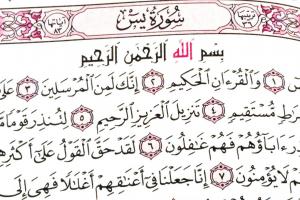 سُورَةُ يسٓ
بِسْمِ اللَّهِ الرَّحْمَٰنِ الرَّحِيمِ
۝١ وَالْقُرْءَانِ الْحَكِيمِ ۝٢ إِنَّكَ لَمِنَ الْمُرْسَلِينَ ۝٣ عَلَىٰ
صِرَٰطٍ مُّسْتَقِيمٍ ۝٤ تَنزِيلَ الْعَزِيزِ الرَّحِيمِ ۝٥ لِتُنذِرَ قَوْمًا مَّا
ءَابَآؤُهُمْ فَهُمْ غَٰفِلُونَ ۝٦ لَقَدْ حَقَّ الْقَوْلُ عَلَىٰٓ أَكْثَرِهِمْ
لَا يُؤْمِنُونَ ۝٧ إِنَّا جَعَلْنَا فِىٓ أَعْنَٰقِهِمْ أَغْلَٰلًا فَهِىَ إِلَى